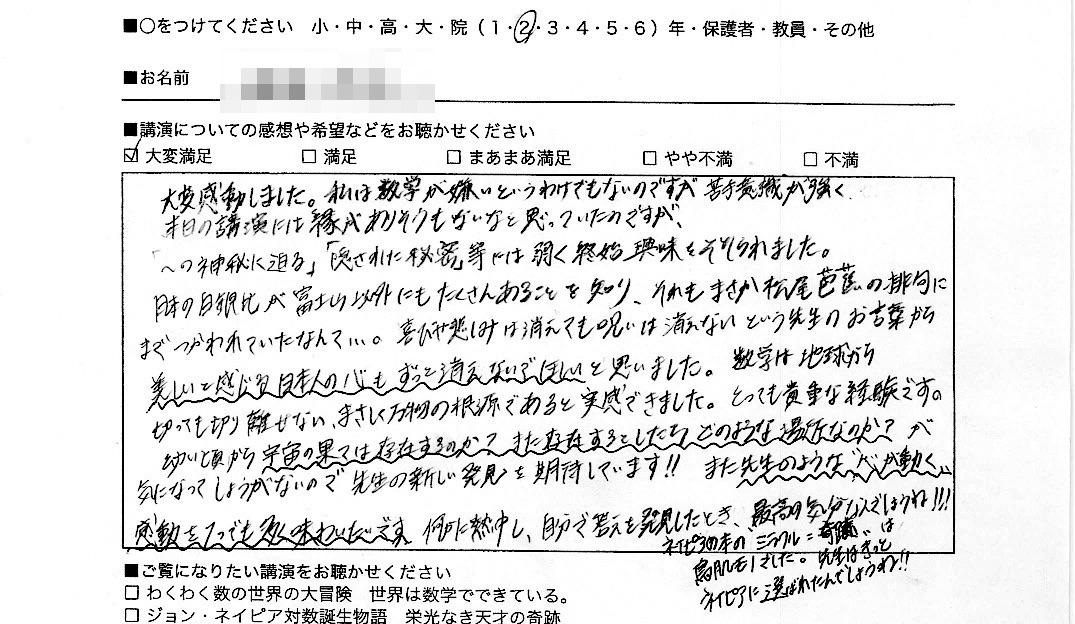 ■○をつけてください 小・中・高・大・院（1・2・3・4・5・6）年・保護者・教員・その他
■お名前
■講演についての感想や希望などをお聴かせください
☑ 大変満足 □ 満足 □ まあまあ満足 □ やや不満 □ 不満
大変感動しました。私は数学が嫌いというわけでもないのですが苦手意識が強く、
本日の講演には縁がありそうもないなと思っていたのですが、
「〜の神秘に迫る」「隠された秘密」等には弱く終始興味をそそられました。
日本の白銀比が富士山以外にもたくさんあることを知り、それもまさか松尾芭蕉の俳句に
までつかわれていたなんて…。喜びや悲しみは消えても呪いは消えないという先生のお言葉から
美しいと感じる日本人の心もずっと消えないでほしいと思いました。数学は地球から
切っても切り離せない、まさしく万物の根源であると実感できました。とっても貴重な経験です。
幼い頃から宇宙の果ては存在するのか？また存在するとしたらどのような場所なのか？が
気になってしょうがないので先生の新しい発見を期待しています!! また先生のような“心が動く”
感動を1つでも多く味わいたいです 何かに熱中し、自分で答えを発見したとき、最高の気分なんでしょうね!!!
ネイピアの本の“ミラクル＝奇蹟”は
鳥肌モノでした。先生はきっと
ネイピアに選ばれたんでしょうね!!
■ご覧になりたい講演をお聴かせください
□ わくわく数の世界の大冒険 世界は数学でできている。
□ ジョン・ネイピア対数誕生物語 栄光なき天才の奇跡